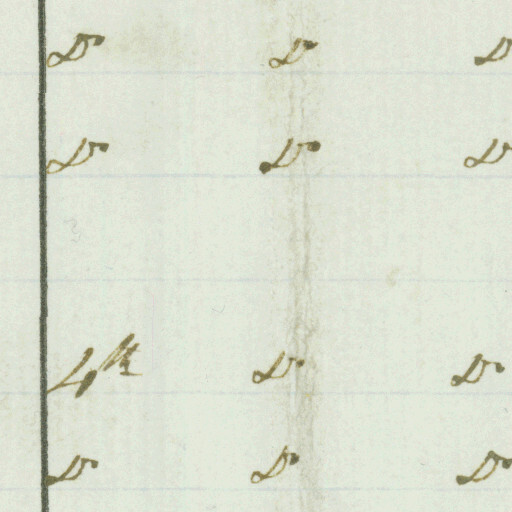 Do Do Do
Do Do Do
4th Do Do
Do Do Do